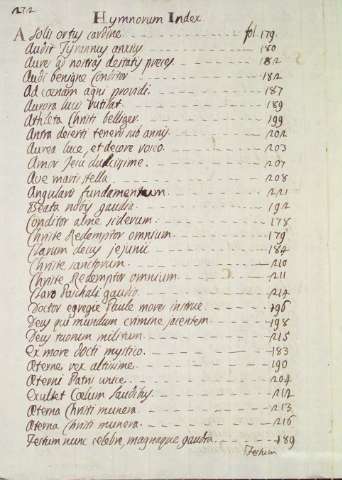 272
Hymnorum Index
A Solis ortus cardine. fol. 179.
Audit Tyrannus anxius 180
Aures ad nostras deitatis preces 182
Audi benigne Conditor 182
Ad cœnam agni providi. 187
Aurora lucis rutilat. 189
Athleta Christi belliger. 199
Antra deserti teneris sub annis. 202
Aurea luce, et decore roseo. 203
Amor Jesu dulcissime. 207
Ave maris stella. 208
Angularis fundamentum. 221
Beata nobis gaudia. 192
Conditor alme siderum. 178
Christe Redemptor omnium. 179
Clarum decus jejunii 184
Christe sanctorum. 210
Christe Redemptor omnium. 211
Claro Paschali gaudio. 214
Doctor egregie Paule mores instrue 196
Deus qui mundum crimine jacentem. 198
Deus tuorum militum. 215
Ex more docti mystico. 183
Æterne rex altissime. 190
Æterni Patris unice. 204
Exultet Cœlum laudibus. 212
Æterna Christi munera. 213
Æterna Christi munera. 216
Festum nunc celebre, magnaque gaudia. 189
Festum